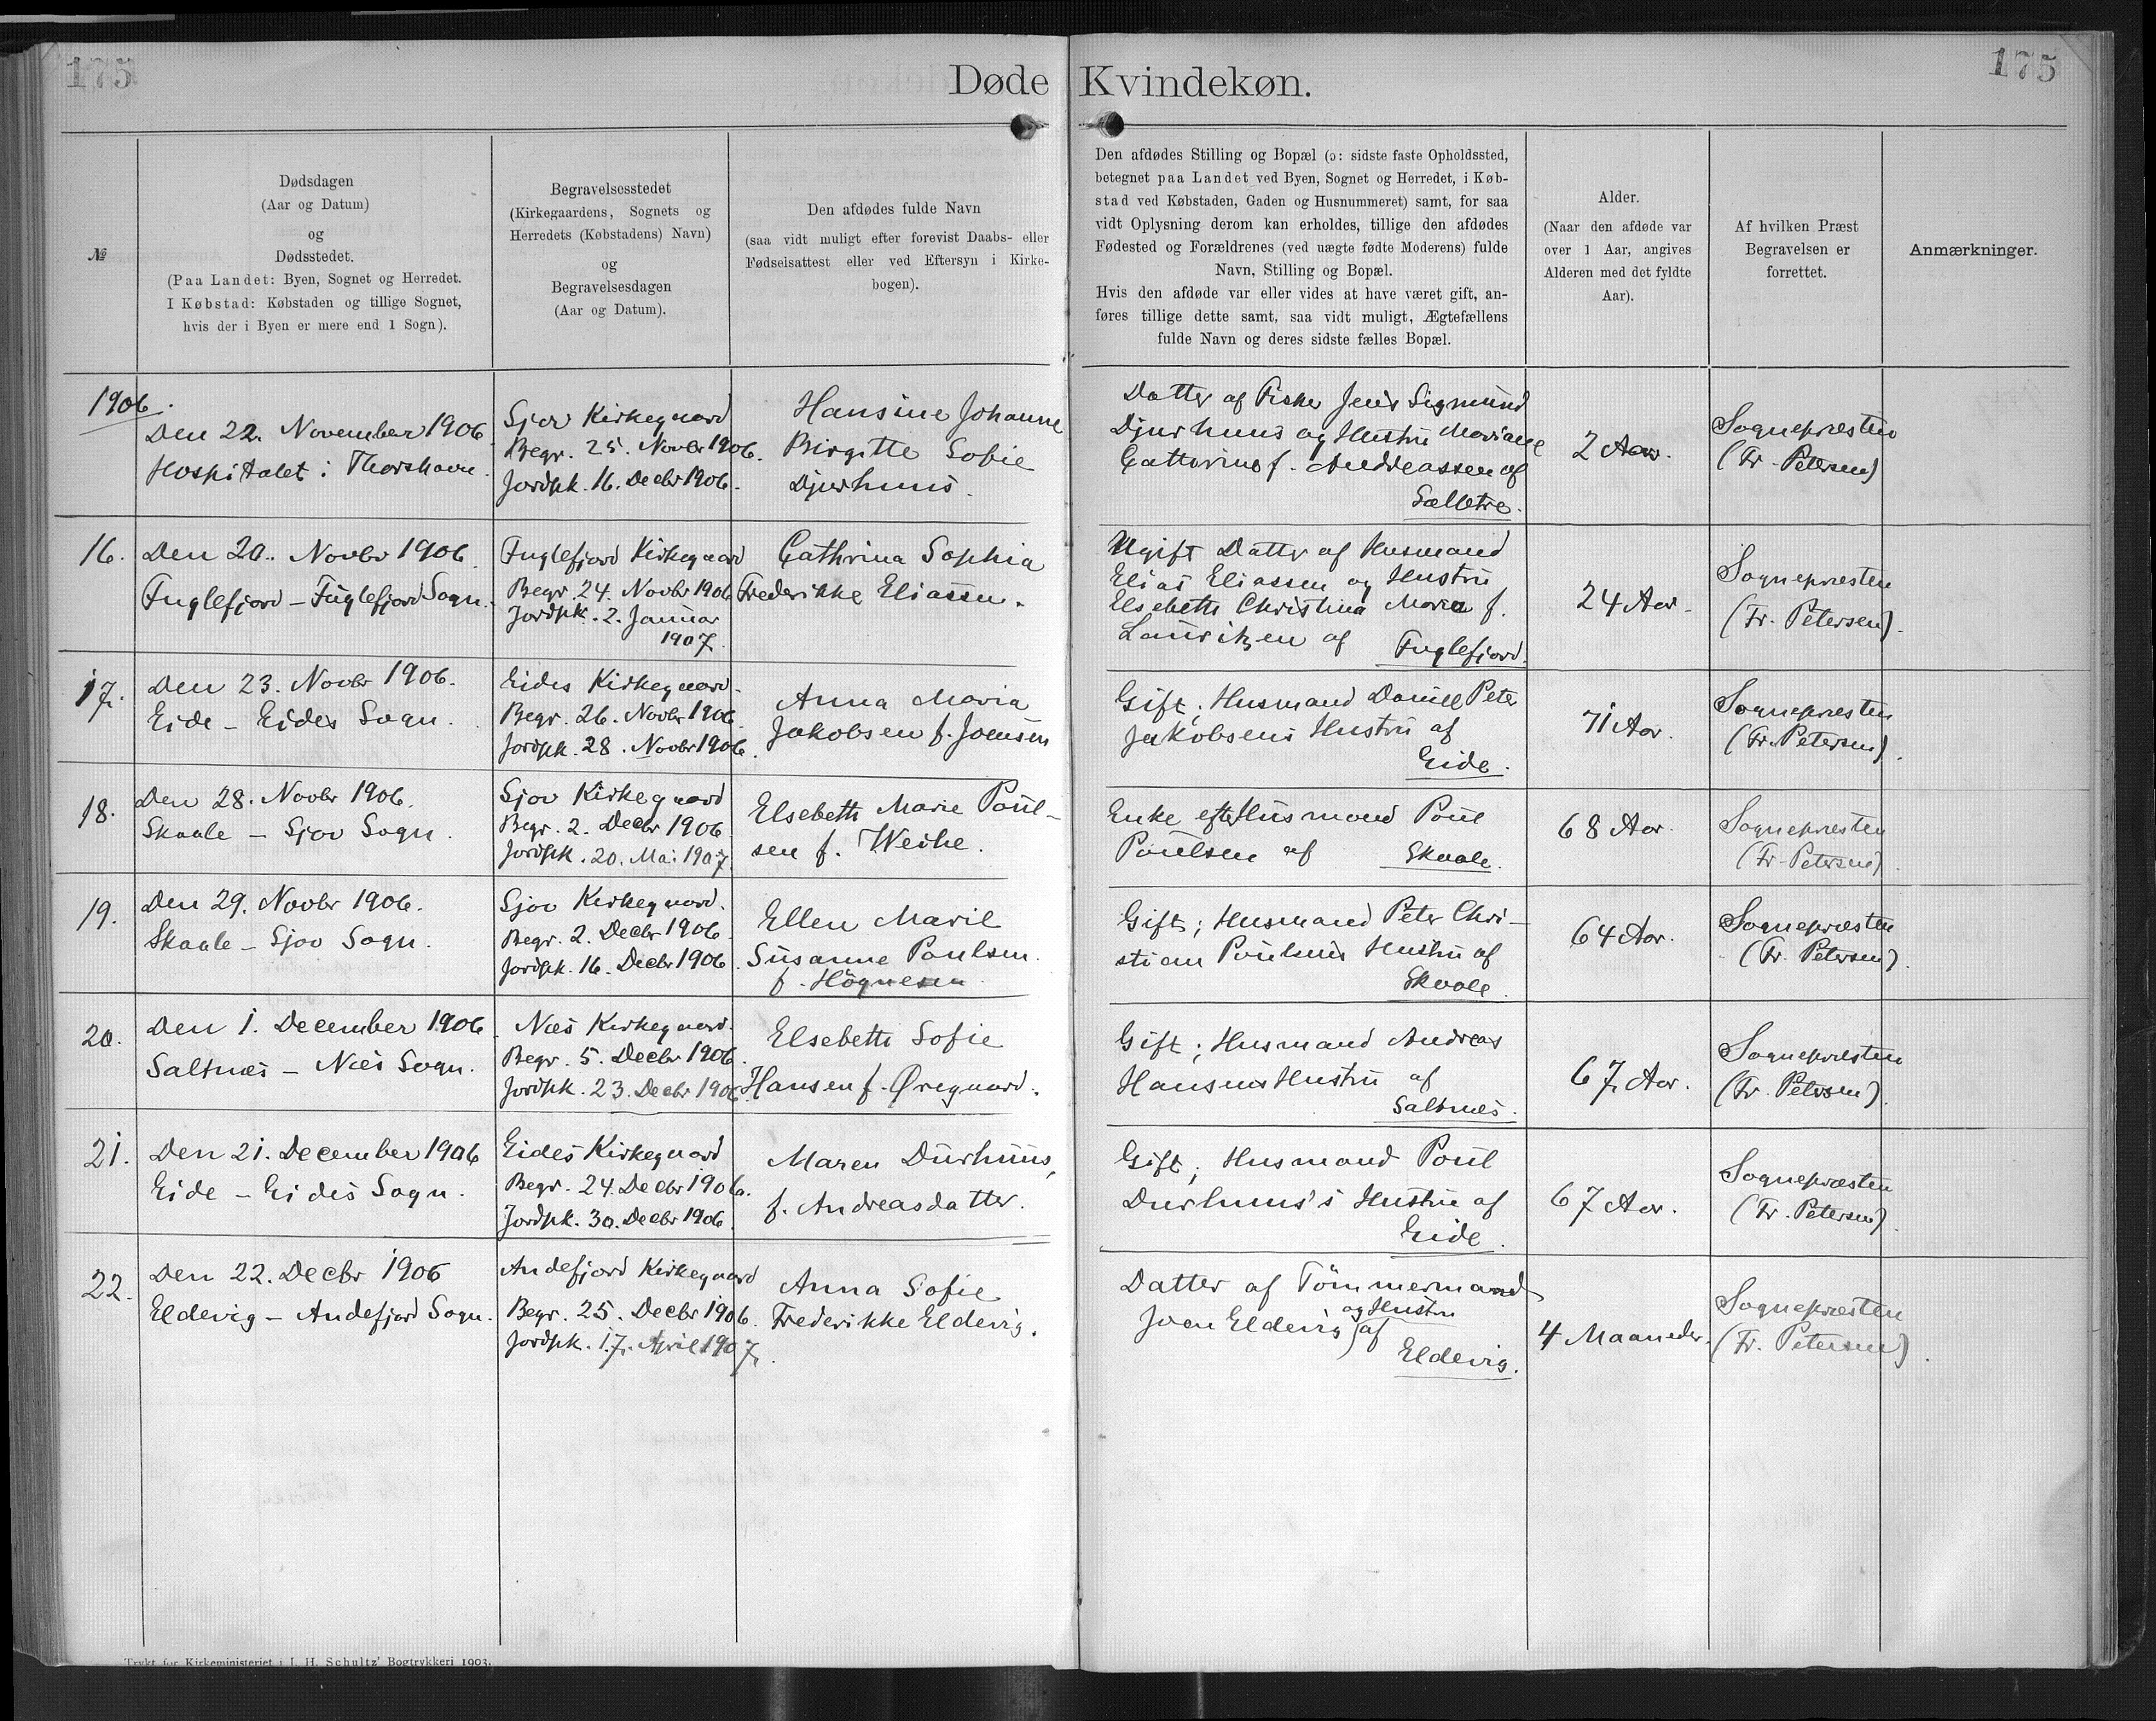 175
175
Døde Kvindekøn.
№
Dødsdagen
(Aar og Datum)
og
Dødsstedet.
(Paa Landet: Byen, Sognet og Herredet.
I Købstad: Købstaden og tillige Sognet,
hvis der i Byen er mere end 1 Sogn).
Begravelsesstedet
(Kirkegaardens, Sognets og
Herredets (Købstadens) Navn)
og
Begravelsesdagen
(Aar og Datum).
Den afdødes fulde Navn
(saa vidt muligt efter forevist Daabs- eller
Fødselsattest eller ved Eftersyn i Kirke-
bogen).
Den afdødes Stilling og Bopæl (ɔ: sidste faste Opholdssted,
betegnet paa Landet ved Byen, Sognet og Herredet, i Køb-
stad ved Købstaden, Gaden og Husnummeret) samt, for saa
vidt Oplysning derom kan erholdes, tillige den afdødes
Fødested og Forældrenes (ved uægte fødte Moderens) fulde
Navn, Stilling og Bopæl.
Hvis den afdøde var eller vides at have været gift, an-
føres tillige dette samt, saa vidt muligt, Ægtefællens
fulde Navn og deres sidste fælles Bopæl.
Alder.
(Naar den afdøde var
over 1 Aar, angives
Alderen med det fyldte
Aar).
Af hvilken Præst
Begravelsen er
forrettet.
Anmærkninger.
1906.
Den 22. November 1906
Hospitalet i Thorshavn.
Sjov Kirkegaard
Begr. 25. Novbr 1906.
Jordpk. 16. Decbr 1906.
Hansine Johanne
Birgitte Sofie
Djurhuus.
Datter af Fisker Jens Sigmund
Djurhuus og Hustru Mariane
Catherine f. Andreassen af
2 Aar.
Sognepræsten
(Fr. Petersen)
16.
Den 20. Novbr 1906
Fuglefjord – Fuglefjord Sogn.
Fuglefjord Kirkegaard
Begr. 24. Novbr 1906
Jordpk. 2. Januar
1907.
Cathrina Sophia
Frederikke Eliassen.
Ugift Datter af Husmand
Elias Eliassen og Hustru
Elsebeth Christina Maria f.
Lauritzen af Fuglefjord.
24 Aar.
Sognepræsten
(Fr. Petersen).
17.
Den 23. Novbr 1906.
Eide – Eides Sogn.
Eides Kirkegaard.
Begr. 26. Novbr 1906
Jordpk. 28. Novbr 1906.
Anna Maria
Jakobsen f. Joensen
Gift; Husmand Daniel Peter
Jakobsens Hustru af
Eide.
71 Aar.
Sognepræsten
(Fr. Petersen).
18.
Den 28. Novbr 1906.
Skaale – Sjov Sogn.
Sjov Kirkegaard
Begr. 2. Decbr 1906
Jordpk. 20. Mai 1907.
Elsebeth Marie Poul-
sen f. Weihe.
Enke efter Husmand Poul
Poulsen af Skaale.
68 Aar.
Sognepræsten
(Fr. Petersen).
19.
Den 29. Novbr 1906.
Skaale – Sjov Sogn.
Sjov Kirkegaard.
Begr. 2. Decbr 1906
Jordpk. 16. Decbr 1906.
Ellen Marie
Susanne Poulsen.
f. Högnesen.
Gift; Husmand Peter Chri-
stian Poulsens Hustru af
Skaale.
64 Aar.
Sognepræsten
(Fr. Petersen).
20.
Den 1. December 1906
Saltnæs – Næs Sogn.
Næs Kirkegaard.
Begr. 5. Decbr 1906.
Jordpk. 23. Decbr 1906.
Elsebeth Sofie
Hansen f. Øregaard.
Gift; Husmand Andreas
Hansens Hustru af
Saltnæs.
67 Aar.
Sognepræsten
(Fr. Petersen).
21.
Den 21. December 1906
Eide – Eides Sogn.
Eides Kirkegaard
Begr. 24. Decbr 1906.
Jordpk. 30. Decbr 1906.
Maren Durhuus,
f. Andreasdatter.
Gift; Husmand Poul
Durhuus's Hustru af
Eide.
67 Aar.
Sognepræsten
(Fr. Petersen).
22.
Den 22. Decbr 1906
Eldevig – Andefjord Sogn.
Andefjord Kirkegaard
Begr. 25. Decbr 1906.
Jordpk. 17. April 1907.
Anna Sofie
Frederikke Eldevig.
Datter af Tömmermand
Joen Eldevig og Hustru af
Eldevig.
4 Maaneder.
Sognepræsten
(Fr. Petersen).
Trykt for Kirkeministeriet i J. H. Schultz' Bogtrykkeri 1903.